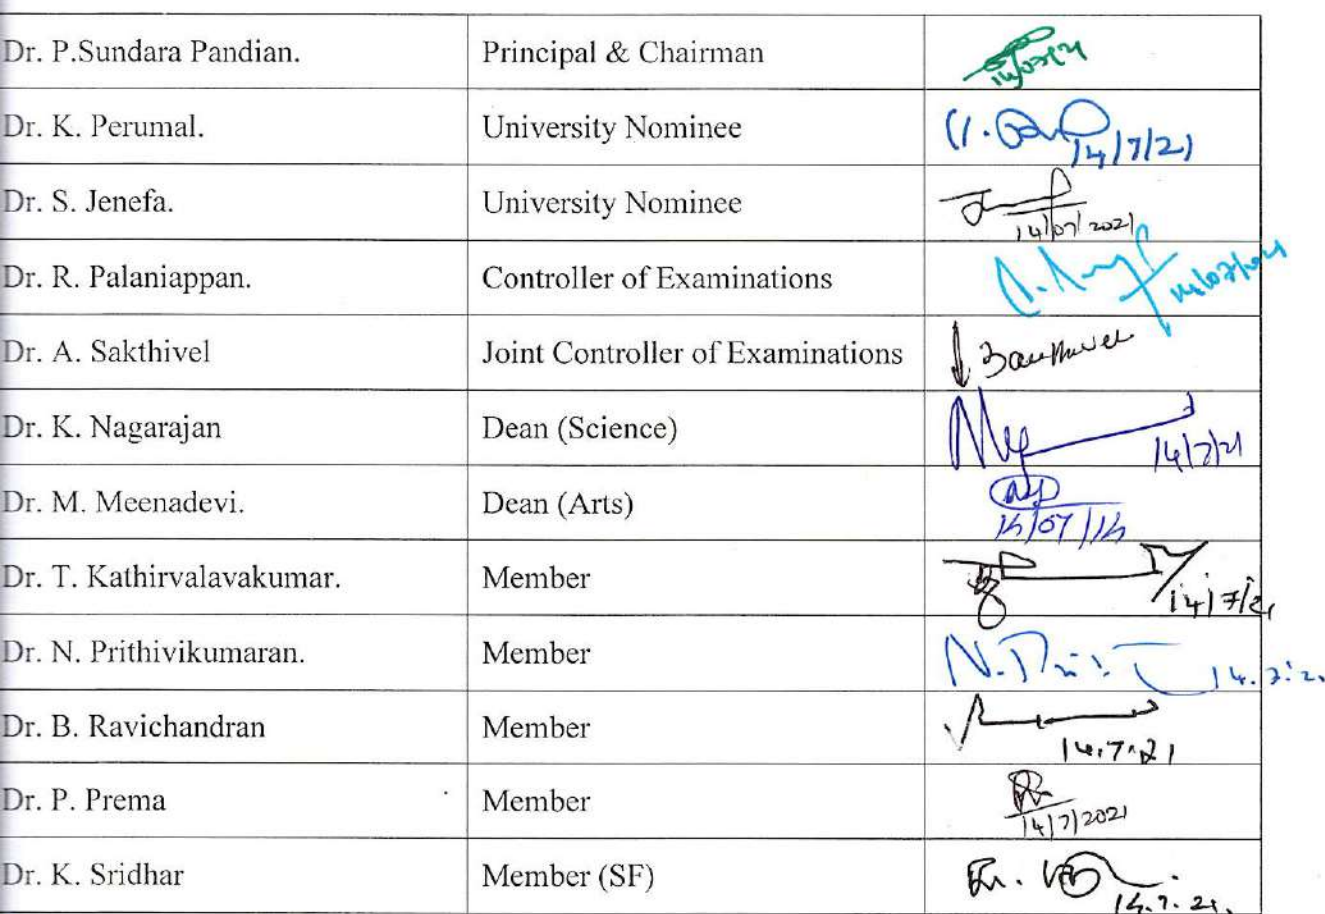 Dr. P.Sundara Pandian. Principal & Chairman 14/07/21
Dr. K. Perumal. University Nominee 14/7/21
Dr. S. Jenefa. University Nominee 14/07/2021
Dr. R. Palaniappan. Controller of Examinations 14/07/2021
Dr. A. Sakthivel Joint Controller of Examinations
Dr. K. Nagarajan Dean (Science) 14/7/21
Dr. M. Meenadevi. Dean (Arts) 14/07/14
Dr. T. Kathirvalavakumar. Member 14/7/21
Dr. N. Prithivikumaran. Member
Dr. B. Ravichandran Member 14.7.21
Dr. P. Prema Member 14/7/2021
Dr. K. Sridhar Member (SF) 14.7.21.